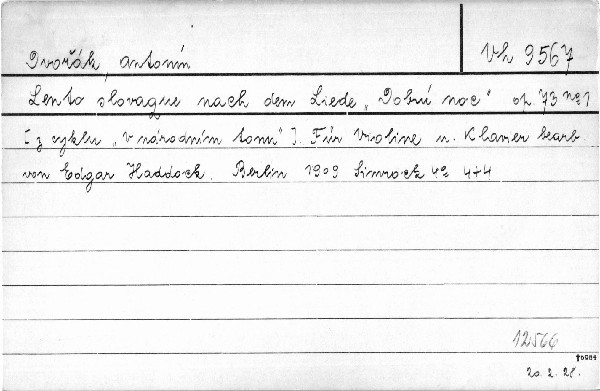 Dvořák, Antonín
Vh 9567
Lento slovaque nach dem Liede „Dobrú noc" op. 73 No 1
[z cyklu „V národním tonu"]. Für Violine u. Klavier bearb.
von Edgar Haddock. Berlin 1909 Simrock 4° 4+4
12566
20. 2. 28.